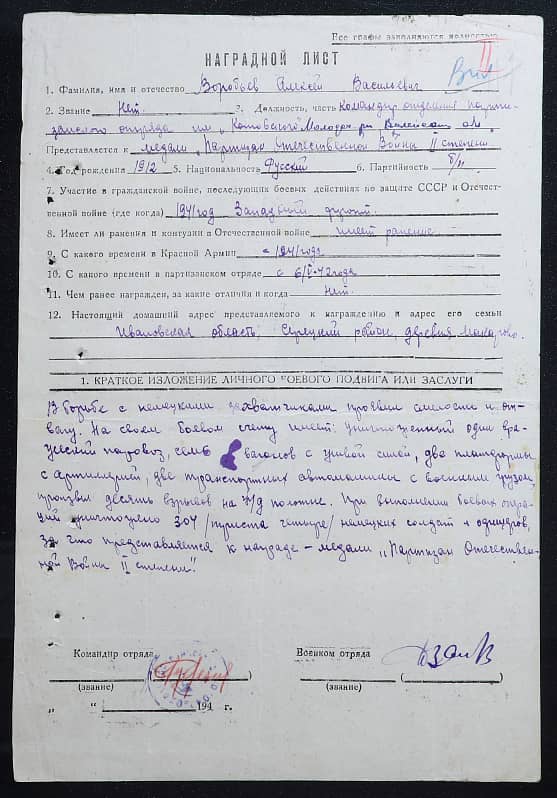 Все графы заполняются полностью
II
НАГРАДНОЙ ЛИСТ
1. Фамилия, имя и отчество Воробьев Алексей Васильевич
2. Звание Нет. 3. Должность, часть командир отделения парти-
занского отряда им „Котовского" Молодеч
Представляется к медали „Партизан Отечественной Войны II степени
4. Год рождения 1912 5. Национальность Русский 6. Партийность б/п
7. Участие в гражданской войне, последующих боевых действиях по защите СССР и Отечест-
венной войне (где когда) 1941 год Западный фронт.
8. Имеет ли ранения и контузии в Отечественной войне имеет ранение
9. С какого времени в Красной Армии с 1941 года
10. С какого времени в партизанском отряде с 6/V-42 года
11. Чем ранее награжден, за какие отличия и когда нет.
12. Настоящий домашний адрес представляемого к награждению и адрес его семьи
Ивановская область район, деревня
1. КРАТКОЕ ИЗЛОЖЕНИЕ ЛИЧНОГО БОЕВОГО ПОДВИГА ИЛИ ЗАСЛУГИ
В борьбе с немецкими захватчиками проявил смелость и от-
вагу. На своем боевом счету имеет: уничтоженный один вра-
жеский паровоз, семь вагонов с живой силой, две платформы
с артиллерией, две транспортных автомашины с военным грузом,
произвел десять взрывов на ж/д полотне. При выполнении боевых опера-
ций уничтожено 304 /триста четыре/ немецких солдат и офицеров,
за что представляется к награде – медали „Партизан Отечествен-
ной Войны II степени".
Командир отряда Военком отряда
(звание) (звание)
„ “ 194 г.